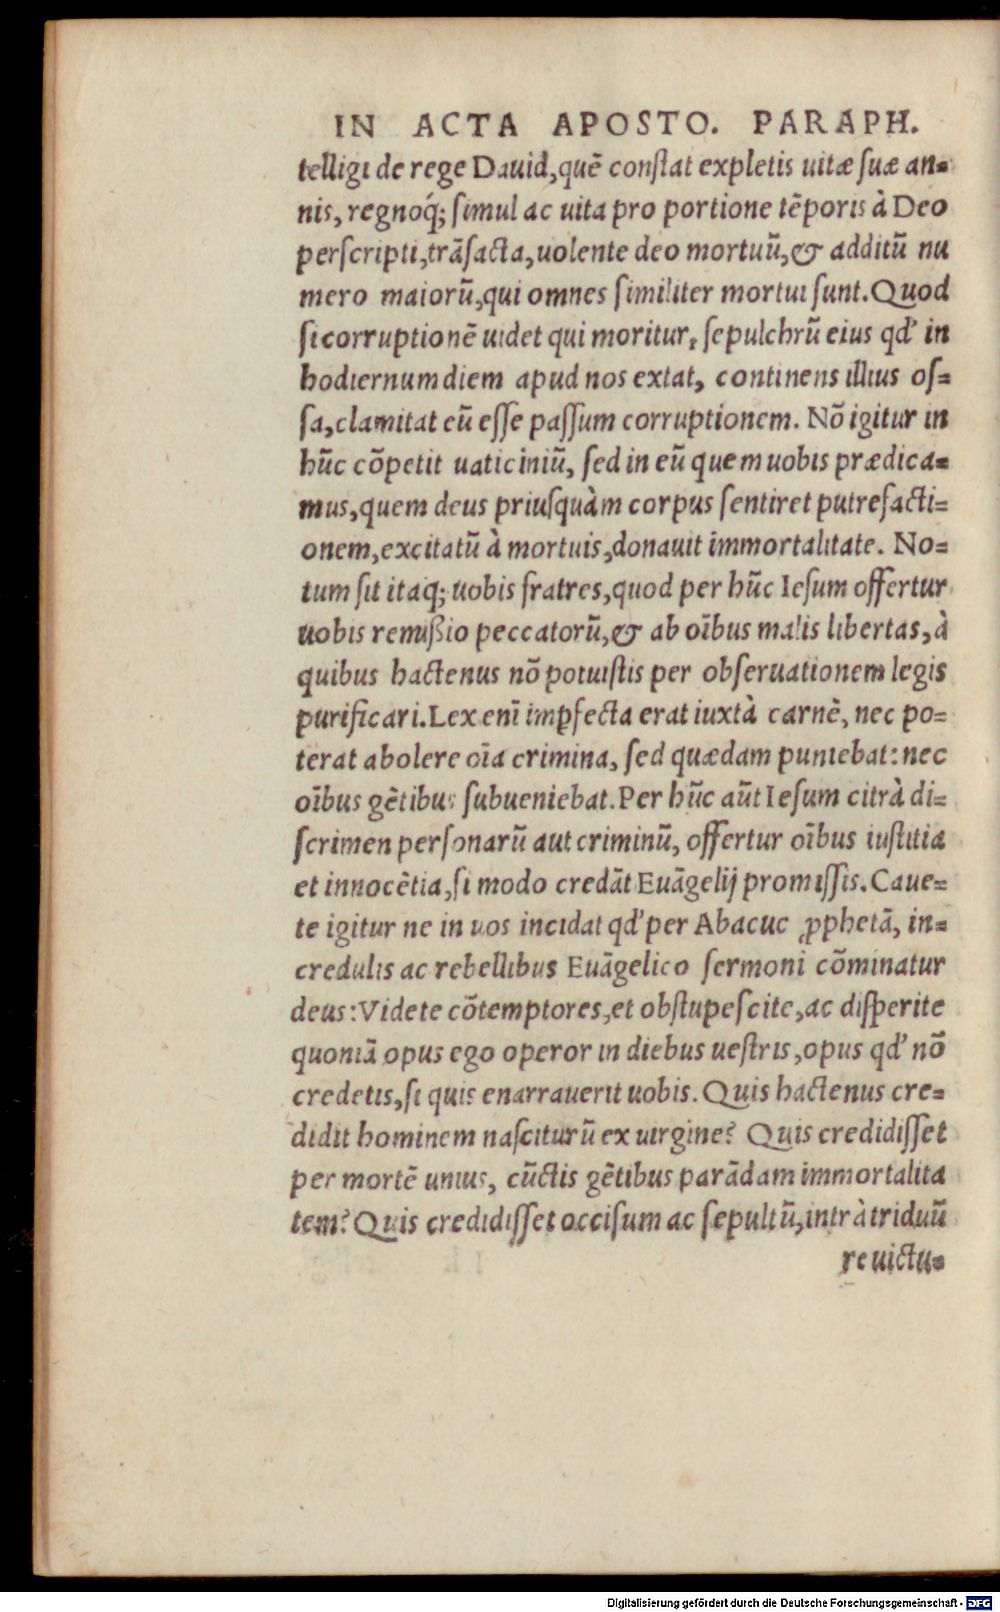 IN ACTA APOSTO. PARAPH.
telligi de rege Dauid,quē conſtat expletis uitæ ſuæ an=
nis, regnoq́; ſimul ac uita pro portione tēporis à Deo
perſcripti,trāſacta,uolente deo mortuū,& additū nu
mero maiorū,qui omnes ſimiliter mortui ſunt.Quod
ſi corruptionē uidet qui moritur, ſepulchrū eius qd' in
hodiernum diem apud nos extat, continens illius oſ=
ſa,clamitat eū eſſe paſſum corruptionem. Nō igitur in
hūc cōpetit uaticiniū, ſed in eū quem uobis prædica=
mus,quem deus priuſquàm corpus ſentiret putrefacti=
onem,excitatū à mortuis,donauit immortalitate. No=
tum ſit itaq; uobis fratres,quod per hūc Ieſum offertur
uobis remißio peccatorū,& ab oībus malis libertas,à
quibus hactenus nō potuiſtis per obſeruationem legis
purificari.Lex enī imꝑfecta erat iuxtà carnē, nec po=
terat abolere oīa crimina, ſed quædam puniebat: nec
oībus gētibus ſubueniebat.Per hūc aūt Ieſum citrà di=
ſcrimen perſonarū aut criminū, offertur oībus iuſtitia
et innocētia,ſi modo credāt Euāgelij promiſſis.Caue=
te igitur ne in uos incidat qd' per Abacuc ꝓphetā, in=
credulis ac rebellibus Euāgelico ſermoni cōminatur
deus:Videte cōtemptores,et obſtupeſcite,ac diſperite
quoniā opus ego operor in diebus ueſtris,opus qd' nō
credetis,ſi quis enarrauerit uobis. Quis hactenus cre=
didit hominem naſciturū ex uirgine? Quis credidiſſet
per mortē unius, cūctis gētibus parādam immortalita
tem? Quis credidiſſet occiſum ac ſepultū,intrà triduū
reuictu=
Digitalisierung gefördert durch die Deutsche Forschungsgemeinschaft - DFG